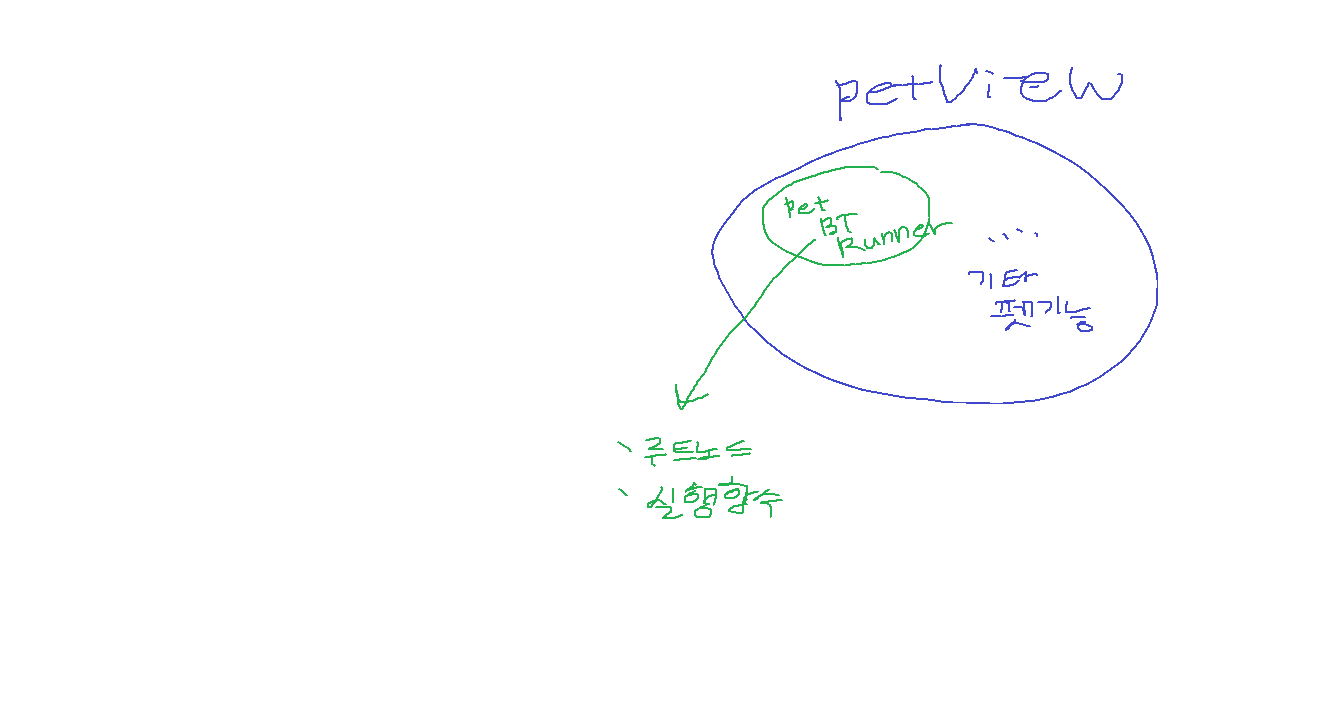 petView
pet
BT
Runner
....
기타
펫기능
루트노드
실행함수